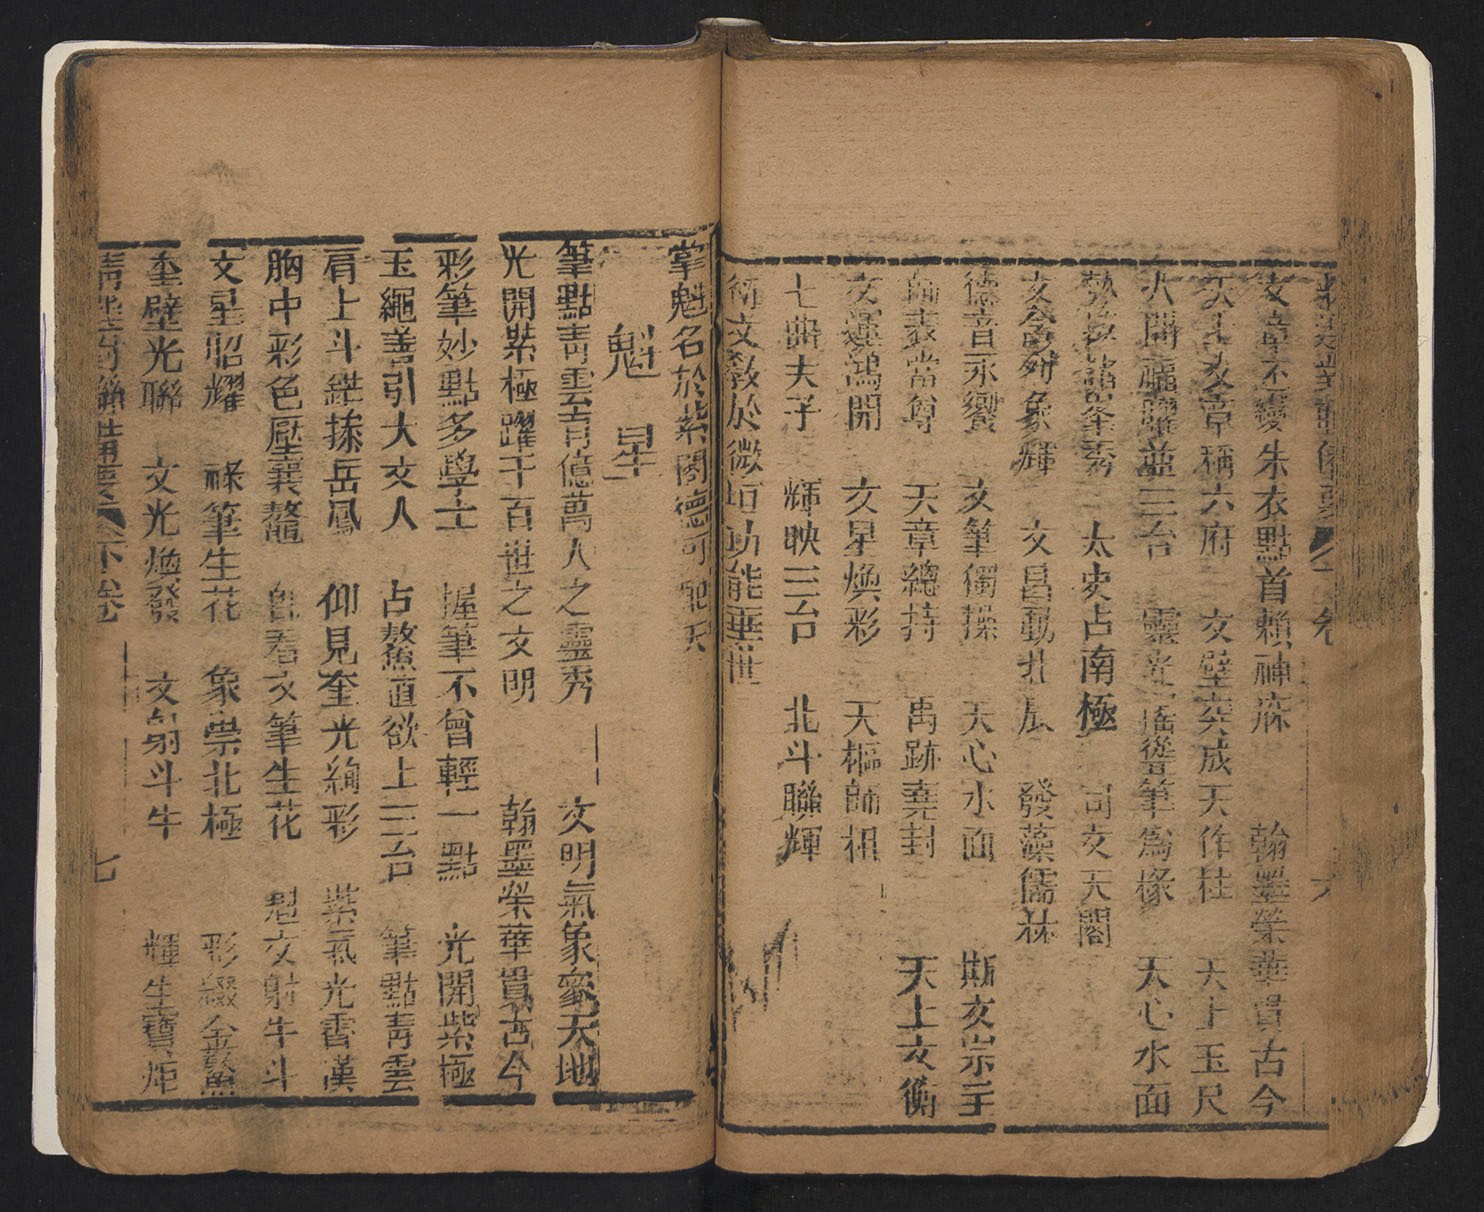 文章不變朱衣點首賴神庥　翰墨榮華貫古今
文章稱六府　文壁奕成天作柱　天士玉尺
大開　並三台　靈　筆為椽　天心水面
諸峯秀　太史占南極　司文天閣
文昌列象輝　文昌動北辰　發藻儒林
德音永饗　文筆獨操　天心水面　斯文宗主
師表常尊　天章總持　禹跡堯封　天上文衡
文運鴻開　文星煥彩　天樞師相
七曲夫子　輝映三台　北斗聯輝
衍文教於微垣功能垂世
掌魁名於紫閣德可配天
魁星
筆點青雲吉億萬人之靈秀　文明氣象參天地
光開紫極躍千百世之文明　翰墨榮華貫古今
彩筆妙點多學士　握筆不曾輕一點　光開紫極
玉繩善引大文人　占鰲直欲上三台　筆點青雲
肩上斗　掭岳鳳　仰見奎光絢彩　紫氣光霄漢
胸中彩色壓襄鰲　飽看文筆生花　魁文射牛斗
文星昭耀　祿筆生花　象崇北極　形綴金鰲
奎壁光聯　文光煥發　文射斗牛　輝生寶炬
對聯備要　下卷　七